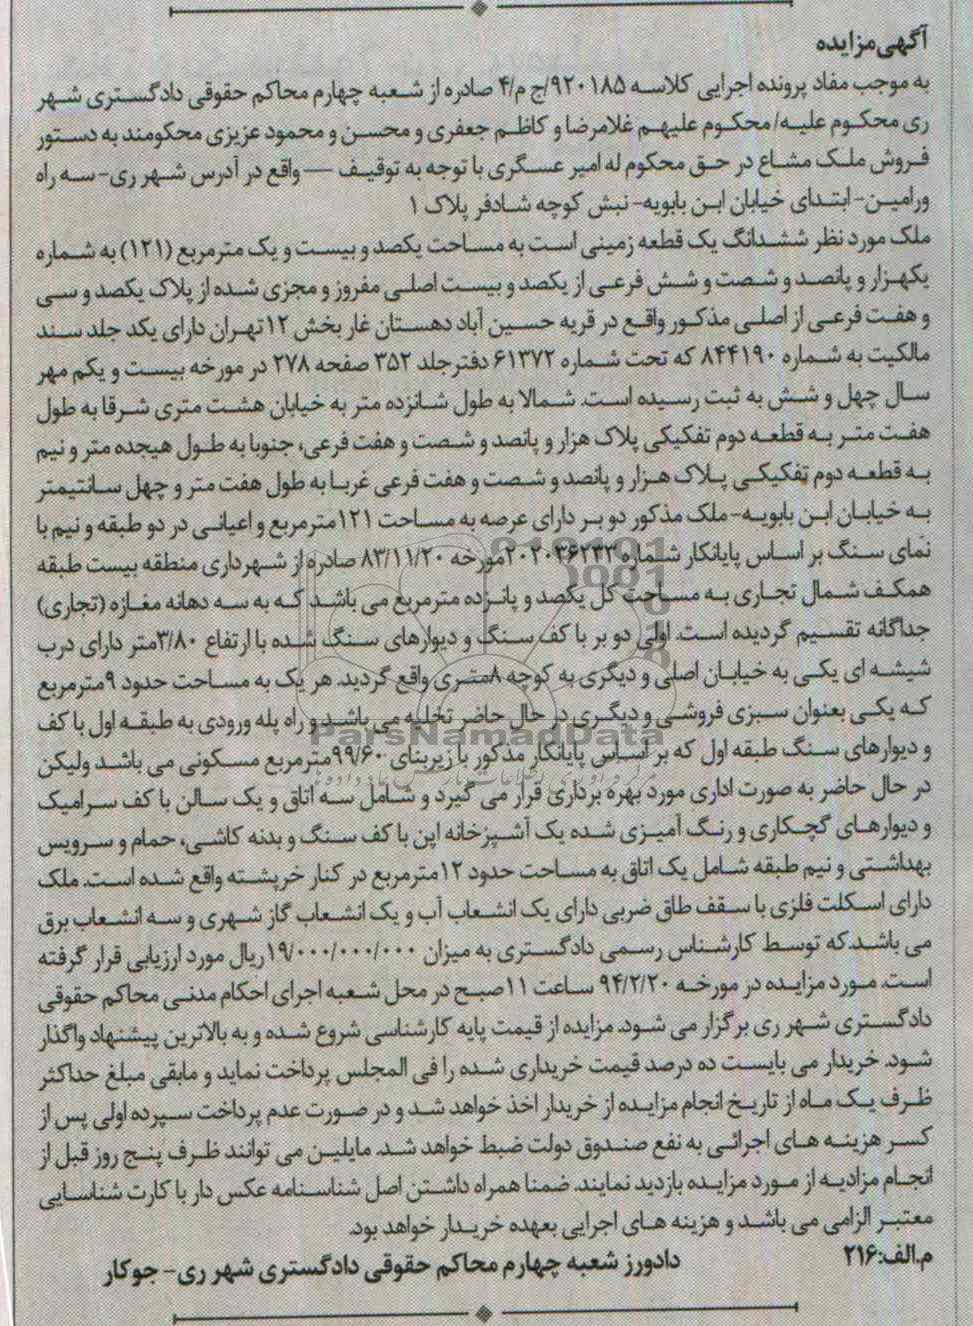 آگهی مزایده
به موجب مفاد پرونده اجرایی کلاسه ۹۲۰۱۸۵/ج م/۴ صادره از شعبه چهارم محاکم حقوقی دادگستری شهر
ری محکوم علیه/محکوم علیهم غلامرضا و کاظم جعفری و محسن و محمود عزیزی محکومند به دستور
فروش ملک مشاع در حق محکوم له امیر عسگری با توجه به توقیف — واقع در آدرس شهر ری- سه راه
ورامین- ابتدای خیابان ابن بابویه- نبش کوچه شادفر پلاک ۱
ملک مورد نظر ششدانگ یک قطعه زمینی است به مساحت یکصد و بیست و یک مترمربع (۱۲۱) به شماره
یکهزار و پانصد و شصت و شش فرعی از یکصد و بیست اصلی مفروز و مجزی شده از پلاک یکصد و سی
و هفت فرعی از اصلی مذکور واقع در قریه حسین آباد دهستان غار بخش ۱۲تهران دارای یکد جلد سند
مالکیت به شماره ۸۴۴۱۹۰ که تحت شماره ۶۱۳۷۲ دفترجلد ۳۵۲ صفحه ۲۷۸ در مورخه بیست و یکم مهر
سال چهل و شش به ثبت رسیده است. شمالا به طول شانزده متر به خیابان هشت متری شرقا به طول
هفت متر به قطعه دوم تفکیکی پلاک هزار و پانصد و شصت و هفت فرعی، جنوبا به طول هیجده متر و نیم
به قطعه دوم تفکیکی پلاک هزار و پانصد و شصت و هفت فرعی غربا به طول هفت متر و چهل سانتیمتر
به خیابان ابن بابویه- ملک مذکور دو بر دارای عرصه به مساحت ۱۲۱مترمربع و اعیانی در دو طبقه و نیم با
نمای سنگ بر اساس پایانکار شماره ۲۰۲۰۳۶۲۳۳مورخه ۸۳/۱۱/۲۰ صادره از شهرداری منطقه بیست طبقه
همکف شمال تجاری به مساحت کل یکصد و پانزده مترمربع می باشد که به سه دهانه مغازه (تجاری)
جداگانه تقسیم گردیده است. اولی دو بر با کف سنگ و دیوارهای سنگ شده با ارتفاع ۳/۸۰متر دارای درب
شیشه ای یکی به خیابان اصلی و دیگری به کوچه ۸متری واقع گردید. هر یک به مساحت حدود ۹مترمربع
که یکی بعنوان سبزی فروشی و دیگری در حال حاضر تخلیه می باشد و راه پله ورودی به طبقه اول با کف
ParsNamadData
و دیوارهای سنگ طبقه اول که بر اساس پایانکار مذکور با زیربنای ۹۹/۶۰مترمربع مسکونی می باشد ولیکن
در حال حاضر به صورت اداری مورد بهره برداری قرار می گیرد و شامل سه اتاق و یک سالن با کف سرامیک
و دیوارهای گچکاری و رنگ آمیزی شده یک آشپزخانه اپن با کف سنگ و بدنه کاشی، حمام و سرویس
بهداشتی و نیم طبقه شامل یک اتاق به مساحت حدود ۱۲مترمربع در کنار خرپشته واقع شده است. ملک
دارای اسکلت فلزی با سقف طاق ضربی دارای یک انشعاب آب و یک انشعاب گاز شهری و سه انشعاب برق
می باشد.که توسط کارشناس رسمی دادگستری به میزان ۱۹/۰۰۰/۰۰۰/۰۰۰ریال مورد ارزیابی قرار گرفته
است. مورد مزایده در مورخه ۹۴/۲/۲۰ ساعت ۱۱صبح در محل شعبه اجرای احکام مدنی محاکم حقوقی
دادگستری شهر ری برگزار می شود. مزایده از قیمت پایه کارشناسی شروع شده و به بالاترین پیشنهاد واگذار
شود. خریدار می بایست ده درصد قیمت خریداری شده را فی المجلس پرداخت نماید و مابقی مبلغ حداکثر
ظرف یک ماه از تاریخ انجام مزایده از خریدار اخذ خواهد شد و در صورت عدم پرداخت سپرده اولی پس از
کسر هزینه های اجرائی به نفع صندوق دولت ضبط خواهد شد. مایلین می توانند ظرف پنج روز قبل از
انجام مزادیه از مورد مزایده بازدید نمایند. ضمنا همراه داشتن اصل شناسنامه عکس دار با کارت شناسایی
معتبر الزامی می باشد و هزینه های اجرایی بعهده خریدار خواهد بود.
م.الف:۲۱۶ دادورز شعبه چهارم محاکم حقوقی دادگستری شهر ری- جوکار